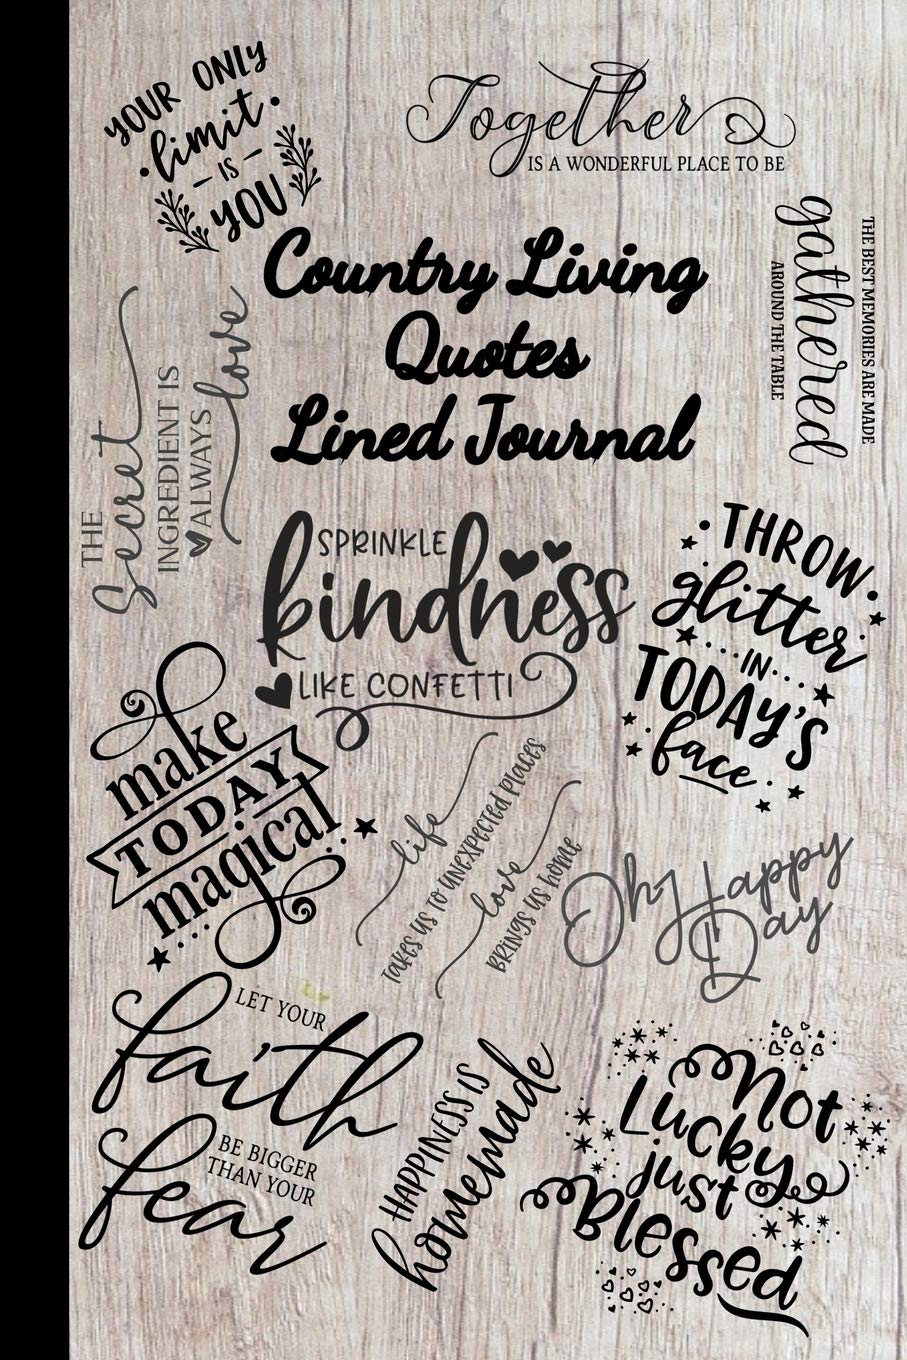 YOUR ONLY
limit
IS
YOU
Together
IS A WONDERFUL PLACE TO BE
THE BEST MEMORIES ARE MADE
gathered
AROUND THE TABLE
Country Living
Quotes
Lined Journal
THE
Secret
INGREDIENT IS
ALWAYS
love
SPRINKLE
kindness
LIKE CONFETTI
THROW
glitter
IN
TODAY'S
face
make
TODAY
magical
life
TAKES US TO UNEXPECTED PLACES
love
BRINGS US HOME
Oh Happy
Day
LET YOUR
faith
BE BIGGER
THAN YOUR
fear
HAPPINESS IS
homemade
Not
Lucky
just
Blessed